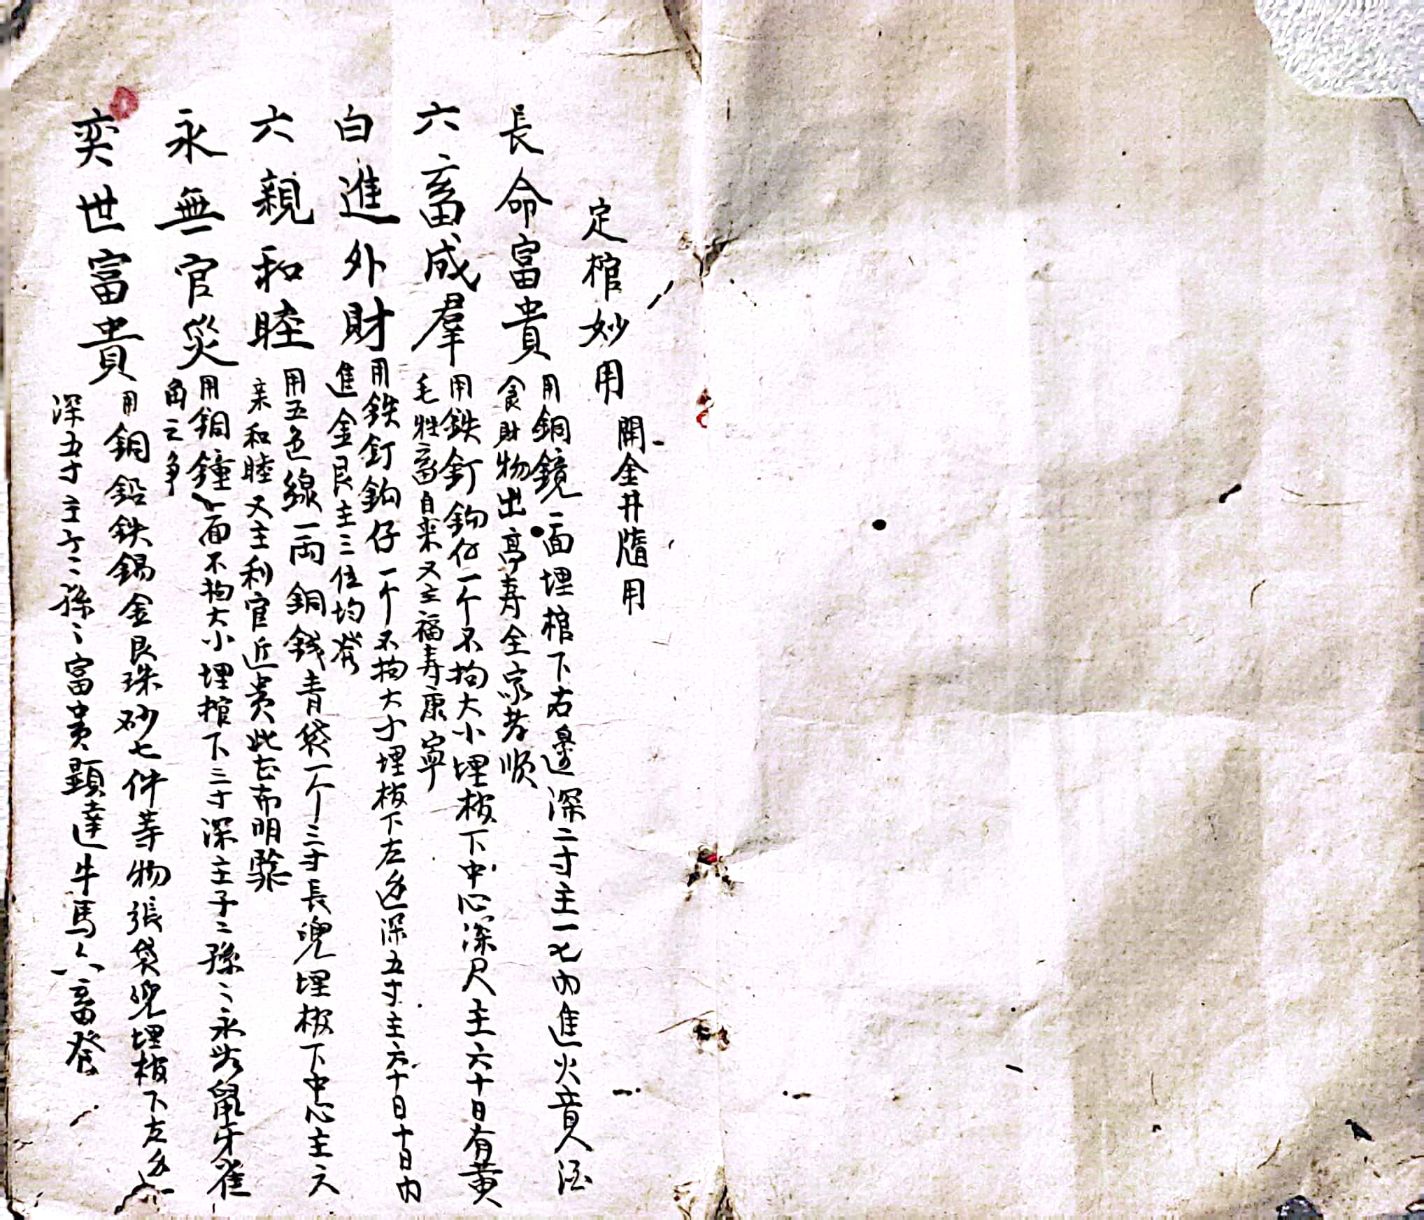 定棺妙用 開金井牆用
長命富貴 用銅鏡一面埋棺下右邊深二寸主一七內進火音人酒
食財物出高壽全家孝順
六畜成羣 用鉄釘鈎仔一个不拘大小埋板下中心深尺主六十日有黄
毛牲畜自来又主福寿康寧
白進外財 用鉄釘鈎仔一个不拘大寸埋板下左边深五寸主六十日十日內
進金艮主三位均發
六親和睦 用五色線一両銅銭青袋一个三寸長兜埋板下中心主六
亲和睦又主利官近贵此乜有明騐
永無官災 用銅鐘一面不拘大小埋棺下三寸深主子〻孫〻永無鼠牙雀
角之争
奕世富貴 用銅鉛鉄錫金艮珠砂七件等物張袋兜埋板下左边
深五寸主子〻孫〻富贵顕達牛馬六畜發